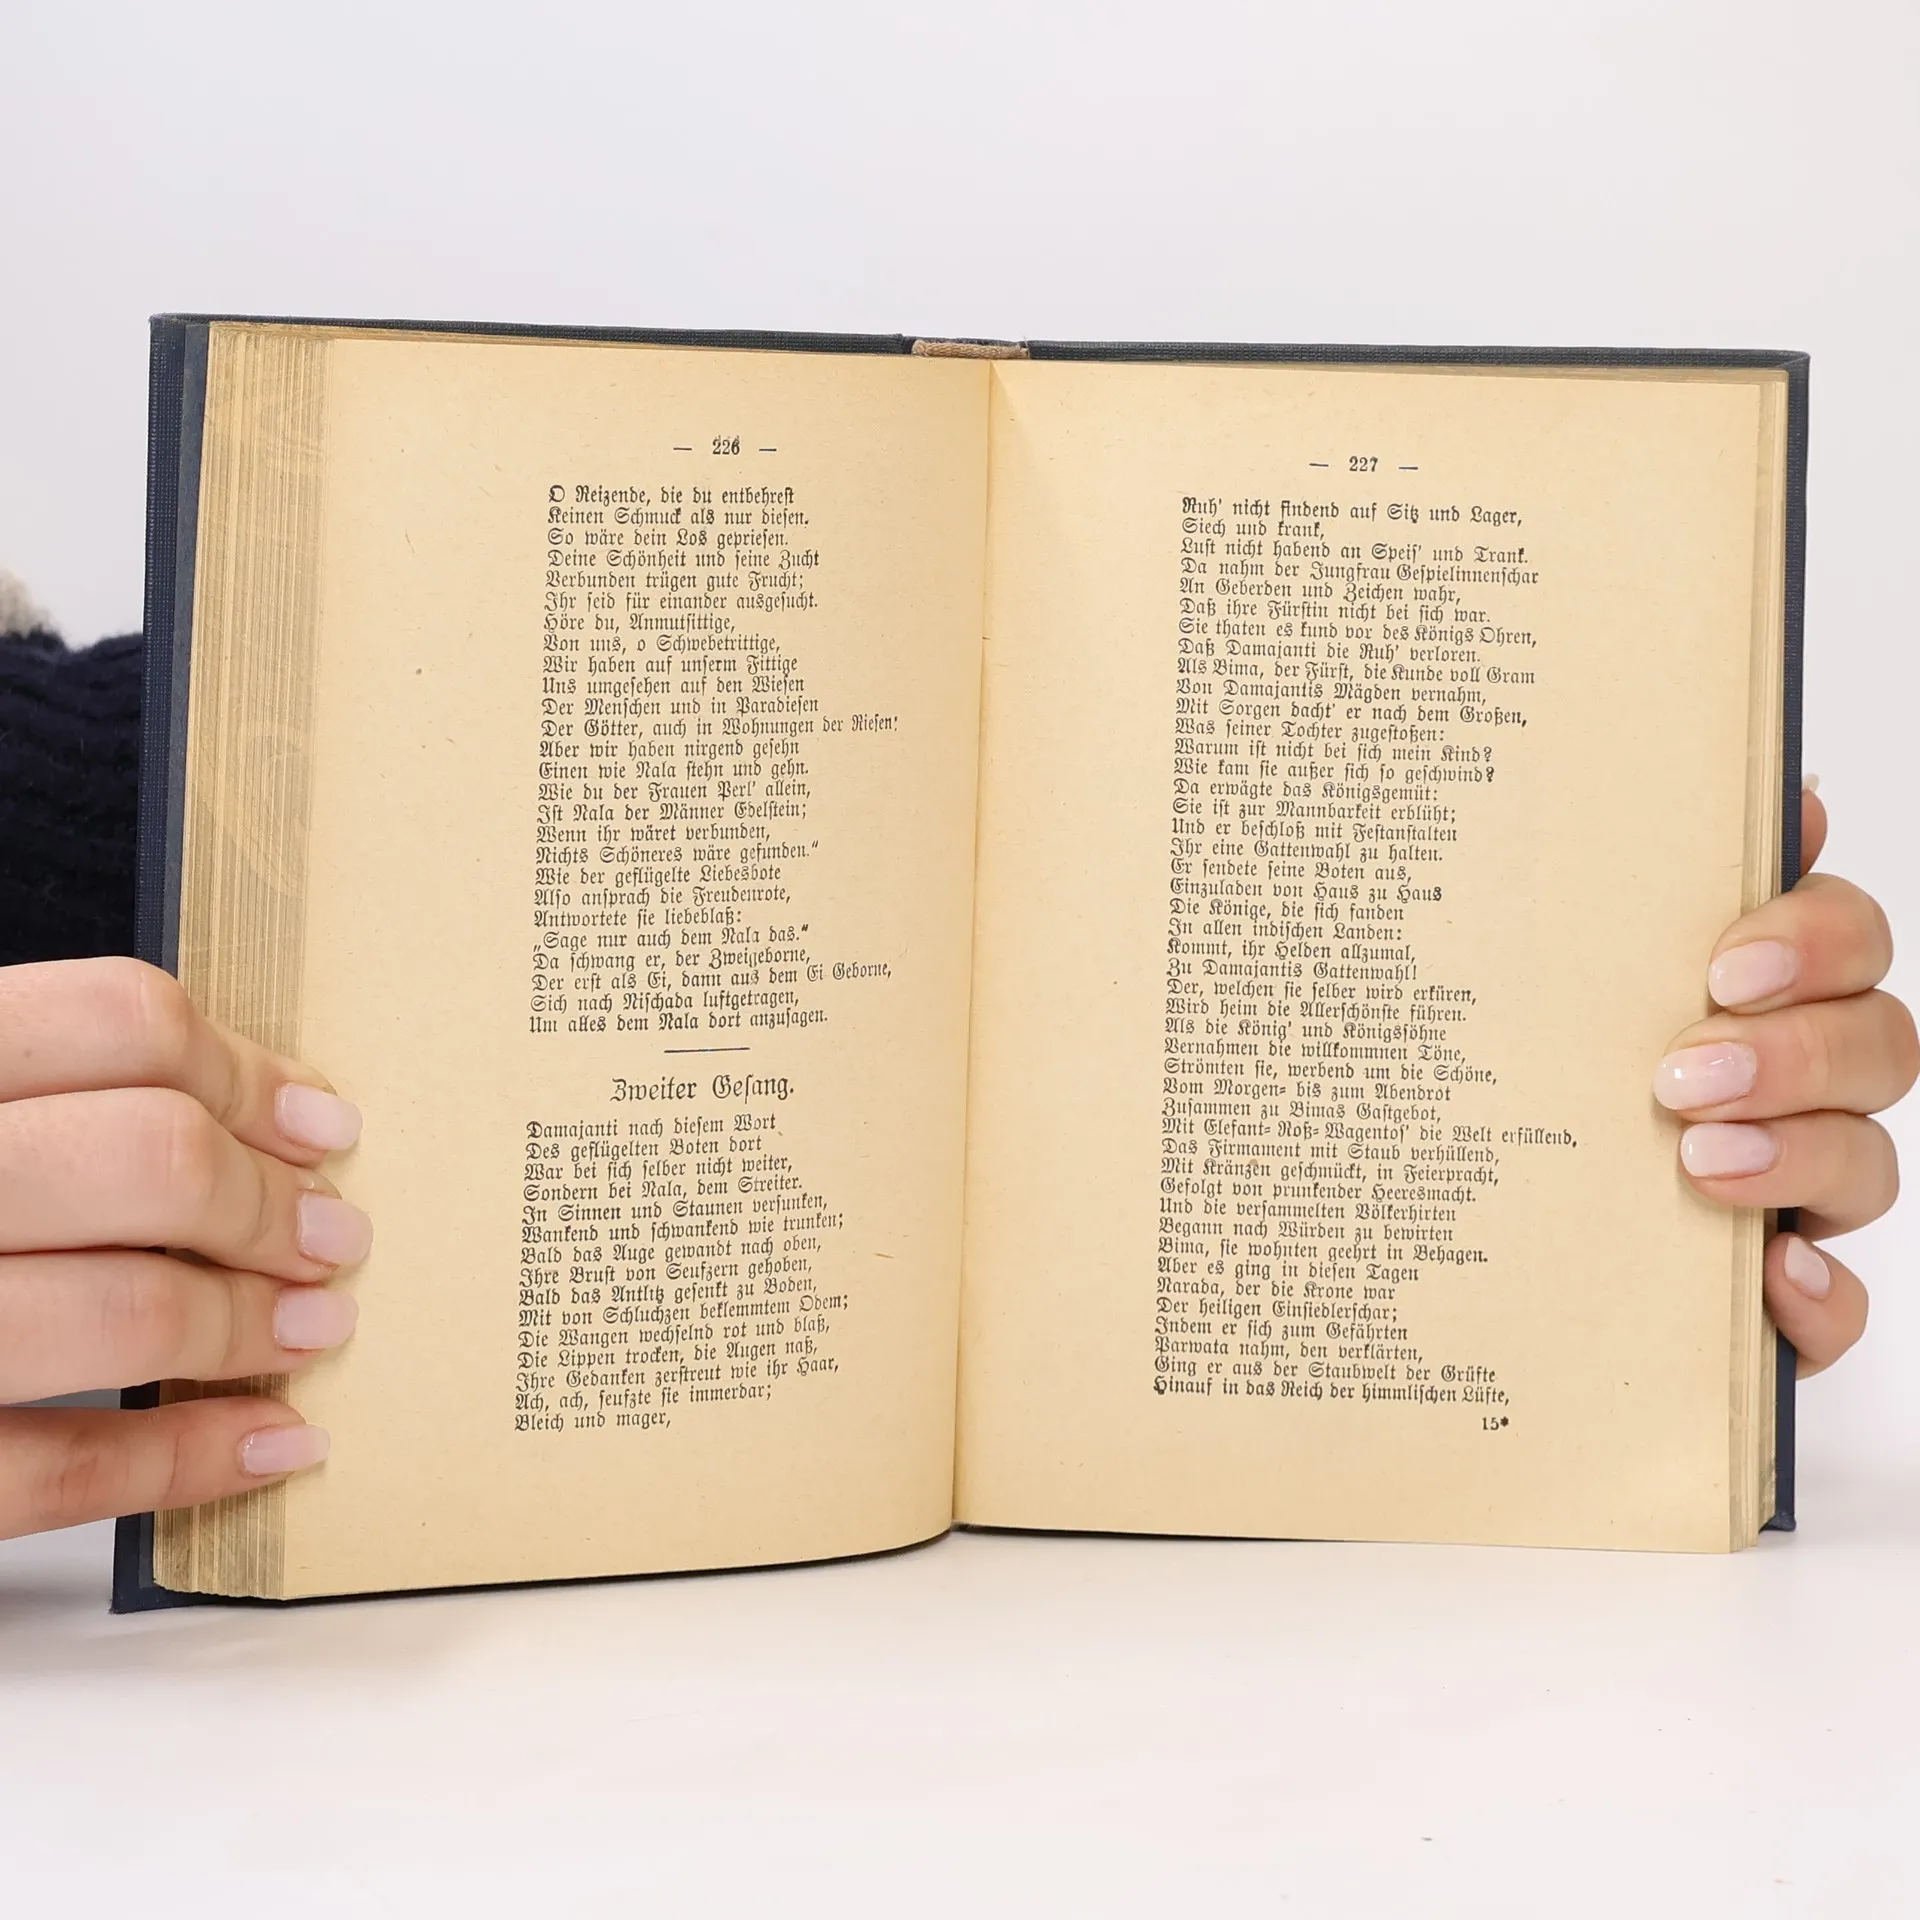 — 226 —
O Reizende, die du entbehrest
Keinen Schmuck als nur diesen.
So wäre dein Los gepriesen.
Deine Schönheit und seine Zucht
Verbunden trügen gute Frucht;
Ihr seid für einander ausgesucht.
Höre du, Anmutsittige,
Von uns, o Schwebetrittige,
Wir haben auf unserm Fittige
Uns umgesehen auf den Wiesen
Der Menschen und in Paradiesen
Der Götter, auch in Wohnungen der Riesen:
Aber wir haben nirgend gesehn
Einen wie Nala stehn und gehn.
Wie du der Frauen Perl' allein,
Ist Nala der Männer Edelstein;
Wenn ihr wäret verbunden,
Nichts Schöneres wäre gefunden.“
Wie der geflügelte Liebesbote
Also ansprach die Freudenrote,
Antwortete sie liebeblaß:
„Sage nur auch dem Nala das.“
Da schwang er, der Zweigeborne,
Der erst als Ei, dann aus dem Ei Geborne,
Sich nach Nischada luftgetragen,
Um alles dem Nala dort anzusagen.
Zweiter Gesang.
Damajanti nach diesem Wort
Des geflügelten Boten dort
War bei sich selber nicht weiter,
Sondern bei Nala, dem Streiter.
In Sinnen und Staunen versunken,
Wankend und schwankend wie trunken;
Bald das Auge gewandt nach oben,
Ihre Brust von Seufzern gehoben,
Bald das Antlitz gesenkt zu Boden,
Mit von Schluchzen beklemmtem Odem;
Die Wangen wechselnd rot und blaß,
Die Lippen trocken, die Augen naß,
Ihre Gedanken zerstreut wie ihr Haar,
Ach, ach, seufzte sie immerdar;
Bleich und mager,
— 227 —
Ruh' nicht findend auf Sitz und Lager,
Siech und krank,
Lust nicht habend an Speis' und Trank.
Da nahm der Jungfrau Gespielinnenschar
An Geberden und Zeichen wahr,
Daß ihre Fürstin nicht bei sich war.
Sie thaten es kund vor des Königs Ohren,
Daß Damajanti die Ruh' verloren.
Als Bima, der Fürst, die Kunde voll Gram
Von Damajantis Mägden vernahm,
Mit Sorgen dacht' er nach dem Großen,
Was seiner Tochter zugestoßen:
Warum ist nicht bei sich mein Kind?
Wie kam sie außer sich so geschwind?
Da erwägte das Königsgemüt:
Sie ist zur Mannbarkeit erblüht;
Und er beschloß mit Festanstalten
Ihr eine Gattenwahl zu halten.
Er sendete seine Boten aus,
Einzuladen von Haus zu Haus
Die Könige, die sich fanden
In allen indischen Landen:
Kommt, ihr Helden allzumal,
Zu Damajantis Gattenwahl!
Der, welchen sie selber wird erküren,
Wird heim die Allerschönste führen.
Als die König' und Königssöhne
Vernahmen die willkommnen Töne,
Strömten sie, werbend um die Schöne,
Vom Morgen- bis zum Abendrot
Zusammen zu Bimas Gastgebot,
Mit Elefant- Roß- Wagentos' die Welt erfüllend,
Das Firmament mit Staub verhüllend,
Mit Kränzen geschmückt, in Feierpracht,
Gefolgt von prunkender Heeresmacht.
Und die versammelten Völkerhirten
Begann nach Würden zu bewirten
Bima, sie wohnten geehrt in Behagen.
Aber es ging in diesen Tagen
Narada, der die Krone war
Der heiligen Einsiedlerschar;
Indem er sich zum Gefährten
Parwata nahm, den verklärten,
Ging er aus der Staubwelt der Grüfte
Hinauf in das Reich der himmlischen Lüfte,
15*